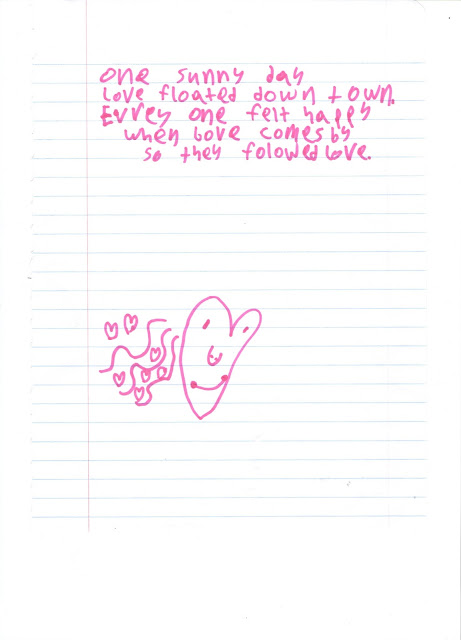 One sunny day
Love floated down town.
Evrey one felt happy
when love comes by
so they folowed love.